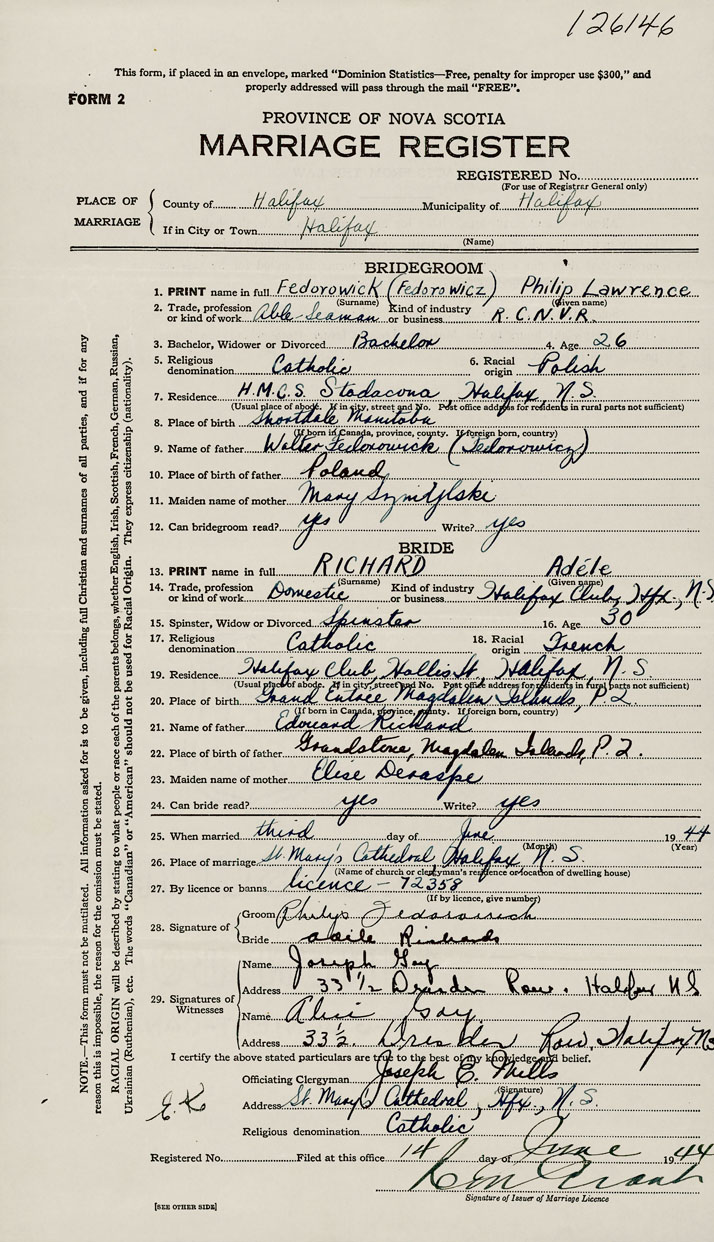 126146
This form, if placed in an envelope, marked "Dominion Statistics—Free, penalty for improper use $300," and
properly addressed will pass through the mail "FREE".
FORM 2
PROVINCE OF NOVA SCOTIA
MARRIAGE REGISTER
REGISTERED No.
(For use of Registrar General only)
PLACE OF MARRIAGE
County of Halifax Municipality of Halifax
If in City or Town Halifax
(Name)
BRIDEGROOM
1. PRINT name in full Fedorowick (Fedorowicz) Philip Lawrence
(Surname) (Given name)
2. Trade, profession or kind of work Able Seaman Kind of industry or business R.C.N.V.R.
3. Bachelor, Widower or Divorced Bachelor 4. Age 26
5. Religious denomination Catholic 6. Racial origin Polish
7. Residence H.M.C.S. Stadacona, Halifax, N.S.
(Usual place of abode. If in city, street and No. Post office address for residents in rural parts not sufficient)
8. Place of birth Shortdale Manitoba
(If born in Canada, province, county. If foreign born, country)
9. Name of father Walter Fedorowick (Fedorowicz)
10. Place of birth of father Poland
11. Maiden name of mother Mary
12. Can bridegroom read? yes Write? yes
BRIDE
13. PRINT name in full RICHARD Adéle
(Surname) (Given name)
14. Trade, profession or kind of work Domestic Kind of industry or business Halifax Club, Hfx., N.S.
15. Spinster, Widow or Divorced Spinster 16. Age 30
17. Religious denomination Catholic 18. Racial origin French
19. Residence Halifax Club, Hollis St., Halifax, N.S
(Usual place of abode. If in city, street and No. Post office address for residents in rural parts not sufficient)
20. Place of birth Grand Entree, Magdalen Islands, P.Q.
(If born in Canada, province, county. If foreign born, country)
21. Name of father Edouard Richard
22. Place of birth of father Grandstone, Magdalen Islands, P.Q.
23. Maiden name of mother Elise Deraspe
24. Can bride read? yes Write? yes
25. When married third day of June 1944
(Month) (Year)
26. Place of marriage St. Mary's Cathedral, Halifax, N.S.
(Name of church or clergyman's residence or location of dwelling house)
27. By licence or banns licence - 72358
(If by licence, give number)
28. Signature of
Groom Fedorowich
Bride Richards
29. Signatures of Witnesses
Name Joseph Gay
Address 33 1/2 Dresden Row. Halifax NS
Name Alice Gay
Address 33 1/2. Dresden Row, Halifax NS
I certify the above stated particulars are true to the best of my knowledge and belief.
Officiating Clergyman Joseph E. Mills
(Signature)
Address St. Mary's Cathedral, Hfx., N.S.
Religious denomination Catholic
Registered No. Filed at this office 14 day of June 1944
Signature of Issuer of Marriage Licence
[SEE OTHER SIDE]
NOTE.—This form must not be mutilated. All information asked for is to be given, including full Christian and surnames of all parties, and if for any
reason this is impossible, the reason for the omission must be stated.
RACIAL ORIGIN will be described by stating to what people or race each of the parents belongs, whether English, Irish, Scottish, French, German, Russian,
Ukrainian (Ruthenian), etc. The words "Canadian" or "American" should not be used for Racial Origin. They express citizenship (nationality).